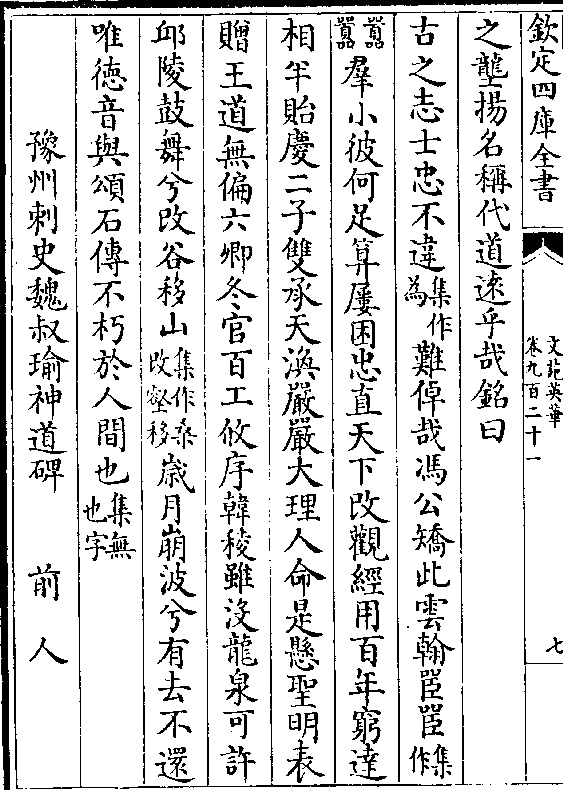 欽定四庫全書
文苑英華
卷九百二十一
七
之壟揚名稱代道遠乎哉銘曰
古之志士忠不違集作為難倬哉馮公矯此雲翰㗊㗊集作
囂囂羣小彼何足算屢困忠直天下改觀經用百年窮達
相半貽慶二子雙承天渙嚴嚴大理人命是懸聖明表
贈王道無偏六卿冬官百工攸序韓稜雖沒龍泉可許
邱陵鼓舞兮改谷移山集作桑改壑移歲月崩波兮有去不還
唯徳音與頌石傳不朽於人間也集無也字
豫州刺史魏叔瑜神道碑 前人